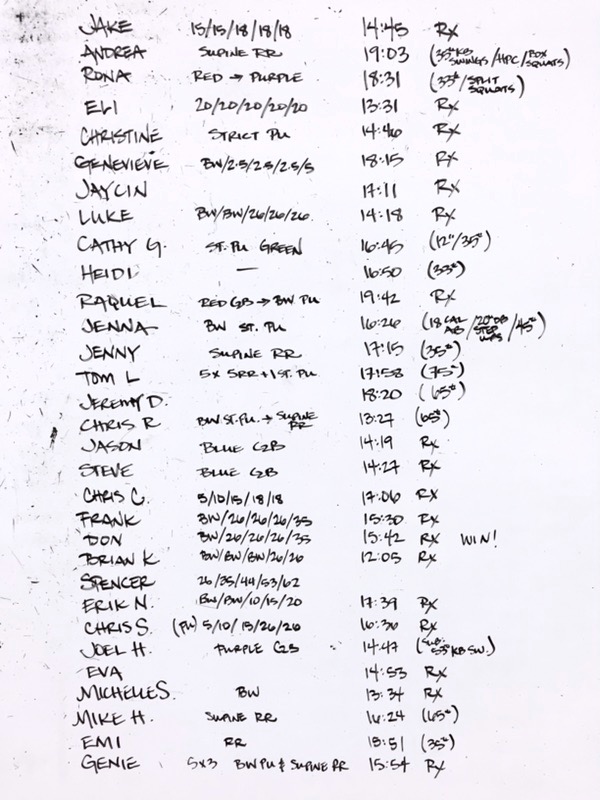 JAKE 15/15/18/18/18 14:45 Rx
ANDREA SUPINE RR 19:03 (35# KB SWINGS/HPC/BOX SQUATS)
RONA RED → PURPLE 18:31 (33#/SPLIT SQUATS)
ELI 20/20/20/20/20 13:31 Rx
CHRISTINE STRICT PU 14:46 Rx
GENEVIEVE BW/2.5/2.5/2.5/5 18:15 Rx
JAYCIN 17:11 Rx
LUKE BW/BW/26/26/26 14:18 Rx
CATHY G. ST. PU GREEN 16:45 (12"/35#)
HEIDI — 16:50 (33#)
RAQUEL RED GB → BW PU 19:42 Rx
JENNA BW ST. PU 16:26 (18 CAL AB/20# DB STEP UPS/45#)
JENNY SUPINE RR 17:15 (35#)
TOM L 5X SRR + 1 ST. PU 17:58 (75#)
JEREMY D. 18:20 (65#)
CHRIS R BW ST. PU. → SUPINE RR 13:27 (65#)
JASON BLUE GB 14:19 Rx
STEVE BLUE GB 14:27 Rx
CHRIS C. 5/10/15/18/18 17:06 Rx
FRANK BW/26/26/26/35 15:30 Rx
DON BW/26/26/26/35 15:42 Rx WIN!
BRIAN K BW/BW/BW/26/26 12:05 Rx
SPENCER 26/35/44/53/62
ERIK N. BW/BW/10/15/20 17:39 Rx
CHRIS S. (PU) 5/10/15/26/26 16:36 Rx
JOEL H. PURPLE GB 14:47 (SUB: 53# KB SW.)
EVA 14:53 Rx
MICHELLE S. BW 13:34 Rx
MIKE H. SUPINE RR 16:24 (65#)
EMI RR 15:51 (35#)
GENIE 5X3 BW PU & SUPINE RR 15:54 Rx